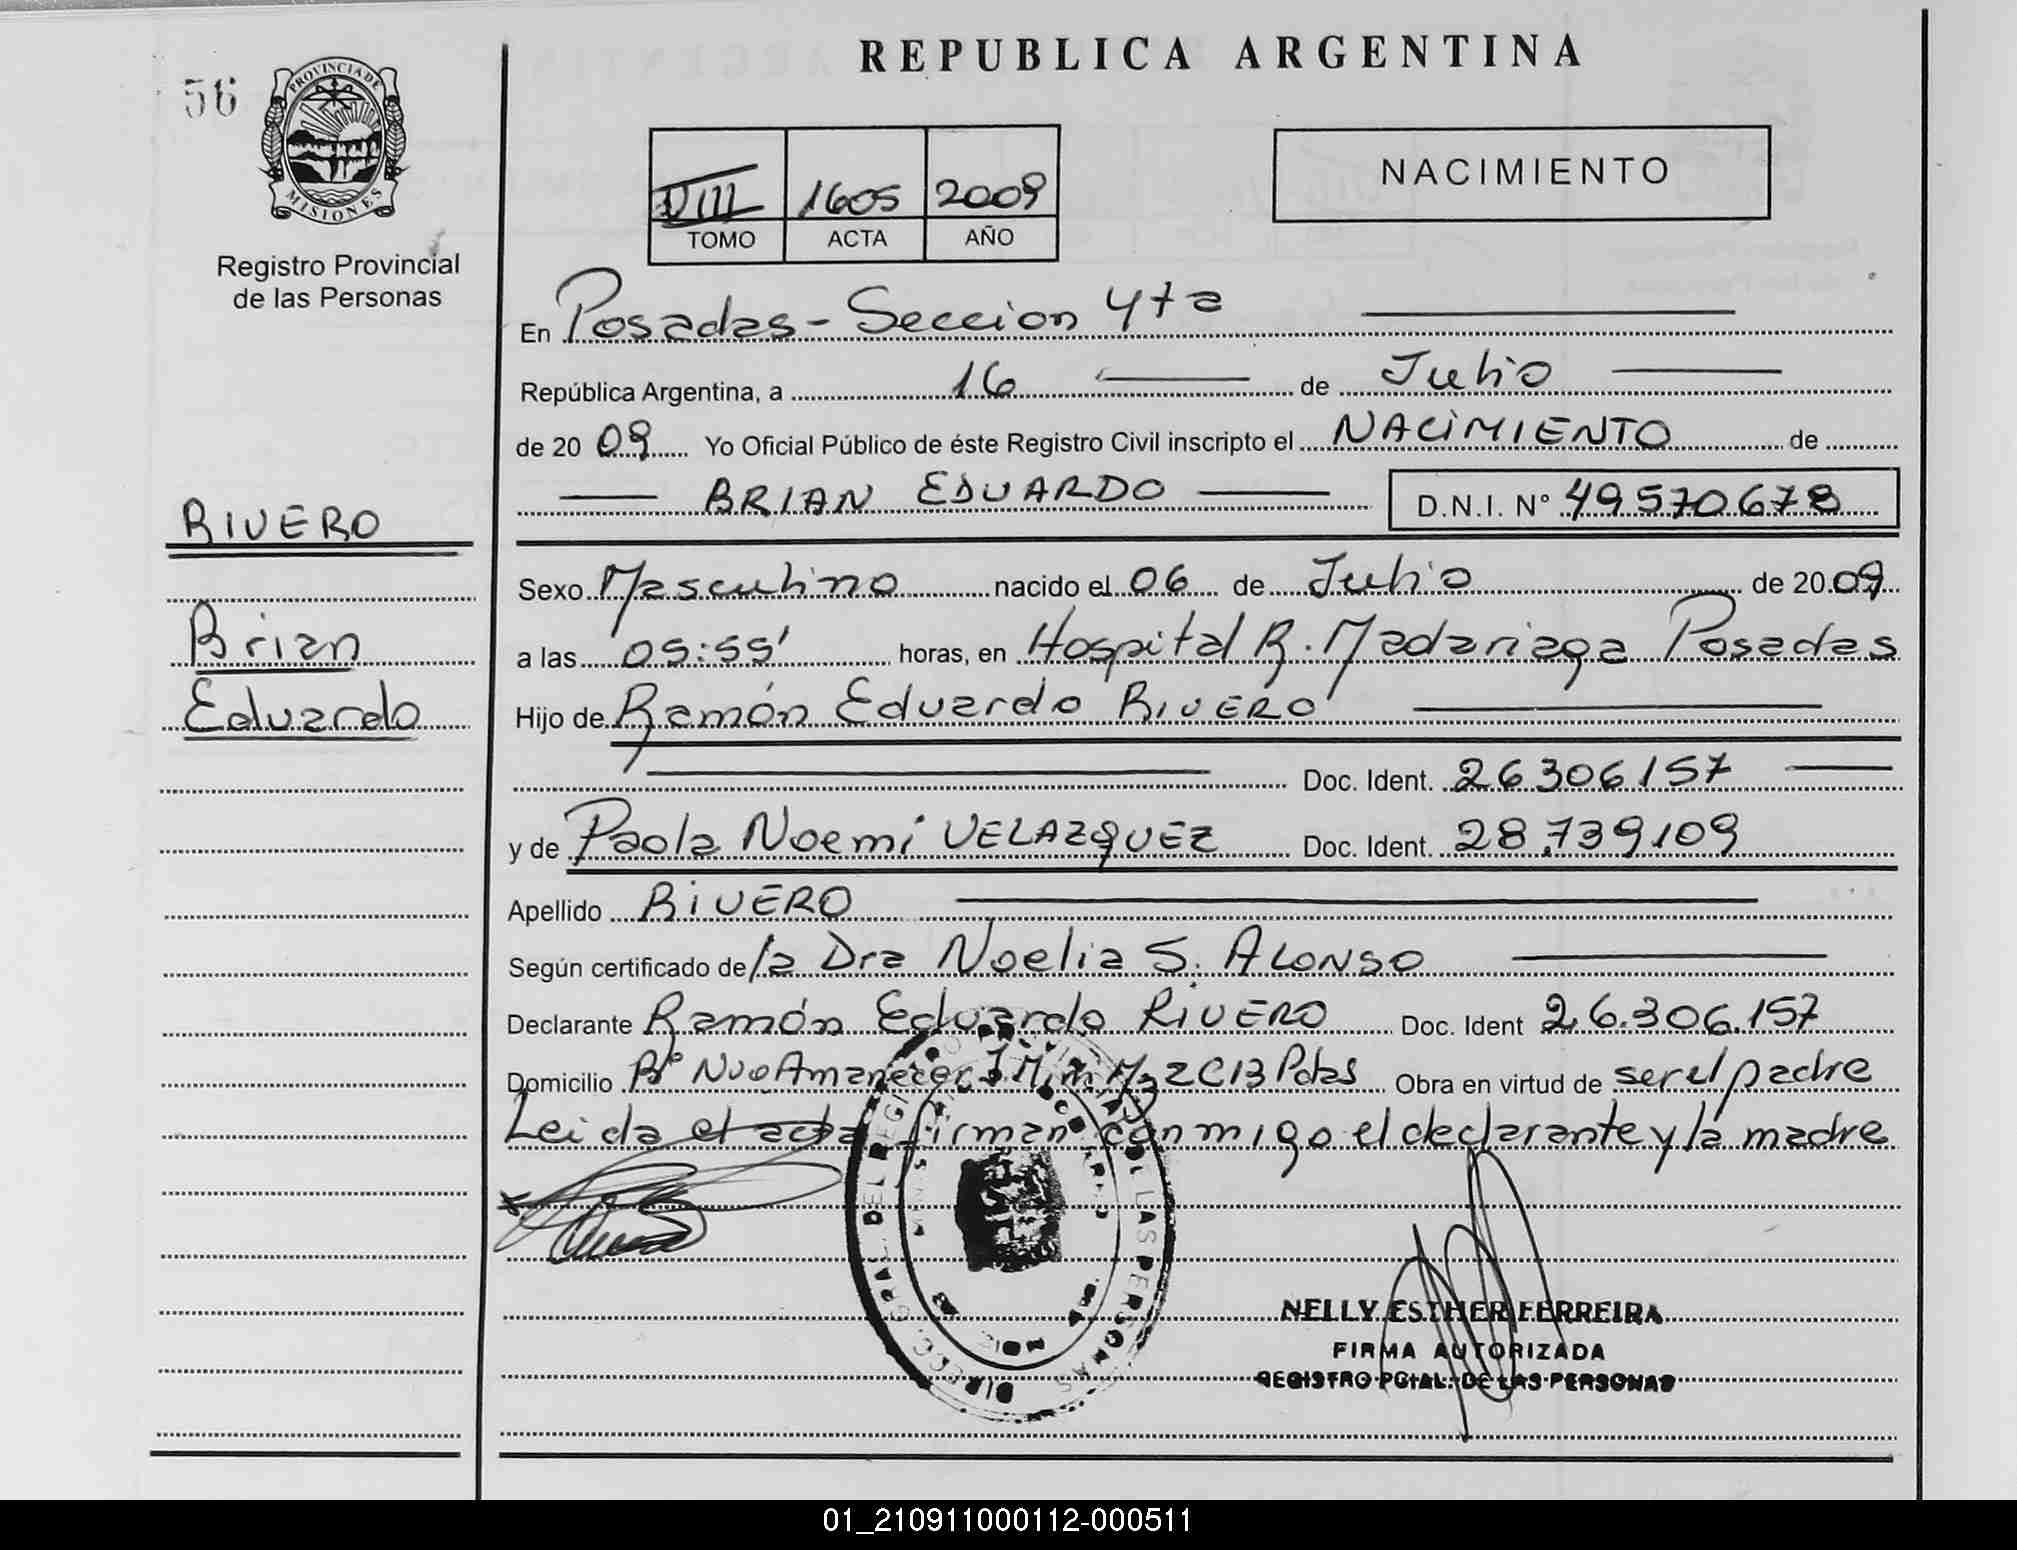 REPUBLICA ARGENTINA
56
PROVINCIA DE
MISIONES
Registro Provincial
de las Personas
VIII 1605 2009
TOMO ACTA AÑO
NACIMIENTO
En Posadas - Seccion 4ta
República Argentina, a 16 de Julio
de 20 09 Yo Oficial Público de éste Registro Civil inscripto el NACIMIENTO de
BRIAN EDUARDO D.N.I. Nº 49570678
RIVERO
Brian
Eduardo
Sexo Masculino nacido el 06 de Julio de 20 09
a las 05:55' horas, en Hospital R. Madariaga Posadas
Hijo de Ramón Eduardo RIVERO
Doc. Ident. 26306157
y de Paola Noemí VELAZQUEZ Doc. Ident. 28.739109
Apellido RIVERO
Según certificado de la Dra Noelia S. ALONSO
Declarante Ramón Eduardo RIVERO Doc. Ident 26.306.157
Domicilio Bº Nvo Amanecer Mz 2 C 13 Pdas Obra en virtud de ser el padre
Leida el acta firman conmigo el declarante y la madre
NELLY ESTHER FERREIRA
FIRMA AUTORIZADA
REGISTRO PCIAL. DE LAS PERSONAS
01_210911000112-000511